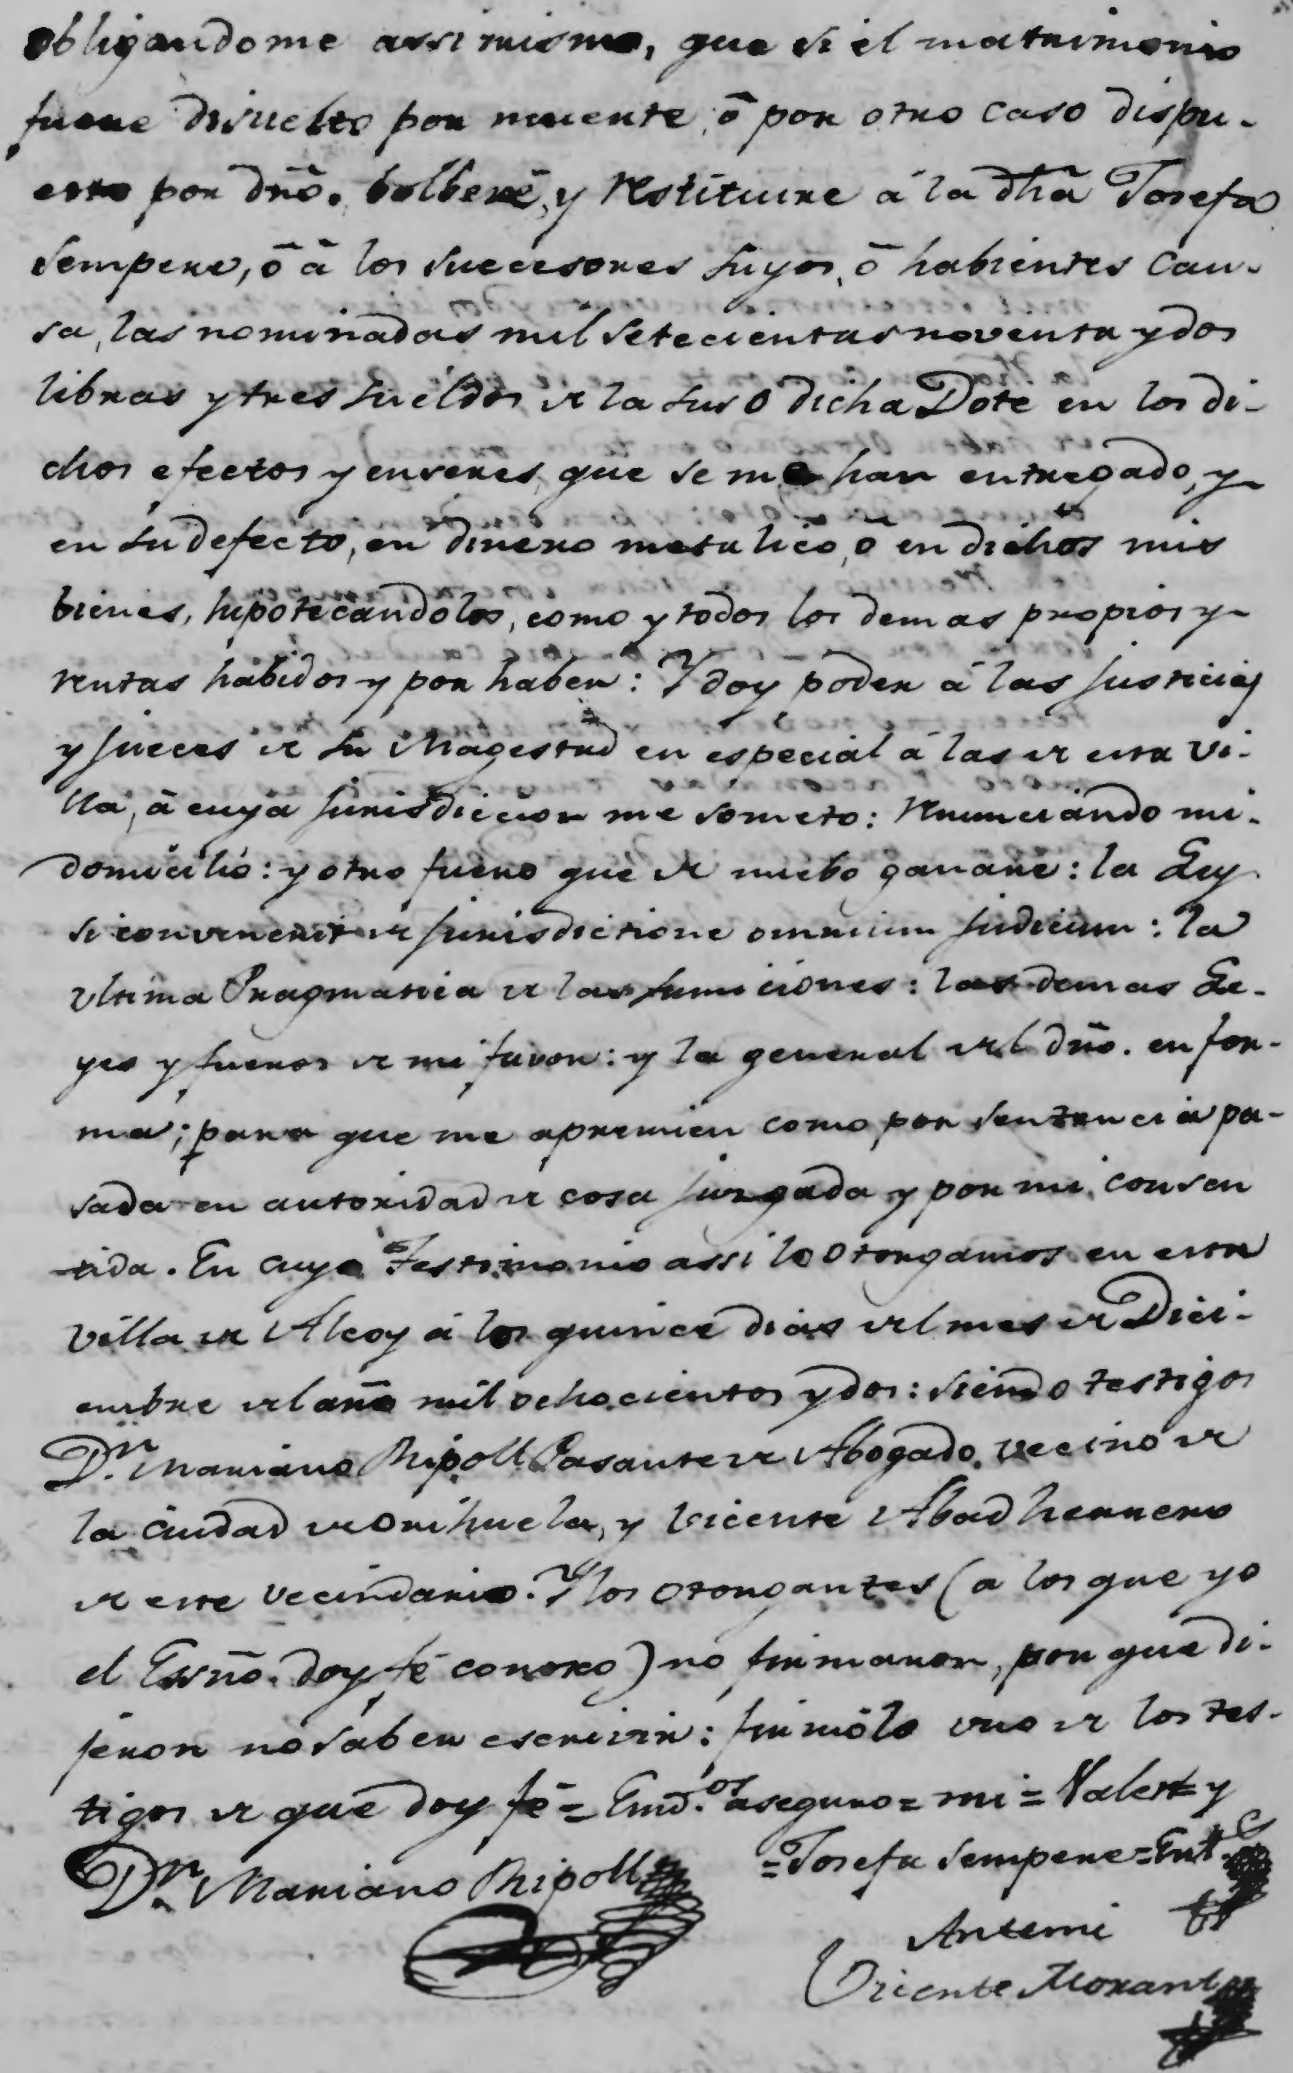 obligandome assi mismo, que si el matrimonio
fuere disuelto por muerte, ó por otro caso dispu-
esto por dño. bolberé, y restituire á la dha Josefa
Sempere, ó á los succesores suyos, ó habientes cau-
sa, las nominadas mil setecientas noventa y dos
libras y tres sueldos de la suso dicha Dote en los di-
chos efectos y enseres, que se me han entregado, y
en su defecto, en dinero metalico, ó en dichos mis
bienes, hipotecandolos, como y todos los demas propios y
rentas habidos y por haber: Y doy poder á las Justicias
y Jueces de su Magestad en especial á las de esta Vi-
lla, á cuya Jurisdiccion me someto: renunciando mi
domicilio: y otro fuero que de nuebo ganare: la Ley
si convenerit de Jurisdictione omnium Judicum: la
ultima Pragmatica de las sumiciones: las demas Le-
yes y fueros de mi favor: y la general del dño. en for-
ma; para que me apremien como por sentencia pa-
sada en autoridad de cosa juzgada y por mi consen
tida. En cuyo Testimonio assi lo otorgamos en esta
Villa de Alcoy á los quince dias del mes de Dici-
embre del año mil ochocientos y dos: siendo testigos
Dn. Mariano Ripoll Pasante de Abogado, vecino de
la Ciudad de Orihuela, y Vicente Abad herrero
de este vecindario. Y los otorgantes (a los que yo
el Essño. doy fé conozco) no firmaron, por que di-
jeron no saben escrivir: firmólo uno de los tes-
tigos de que doy fé = Emd.os aseguro = mi = Valert y
= Josefa Sempere = Ent.
Dn. Mariano Ripoll
Antemi
Vicente Morant